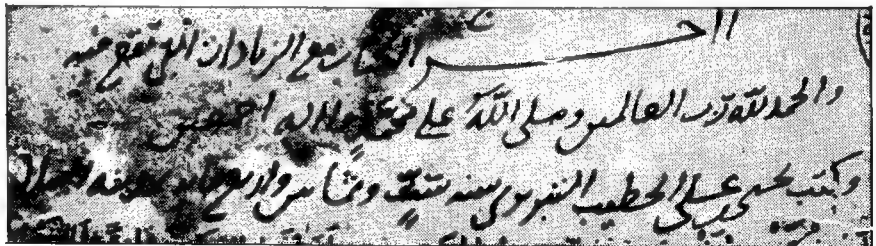 اآخر الكتاب مع الزيادات التي تقع فيه
والحمد لله رب العالمين وصلى الله على محمد واله اجمعين
وكتب يحيى بن علي الخطيب التبريزي سنه ست وثمانين واربع مائه